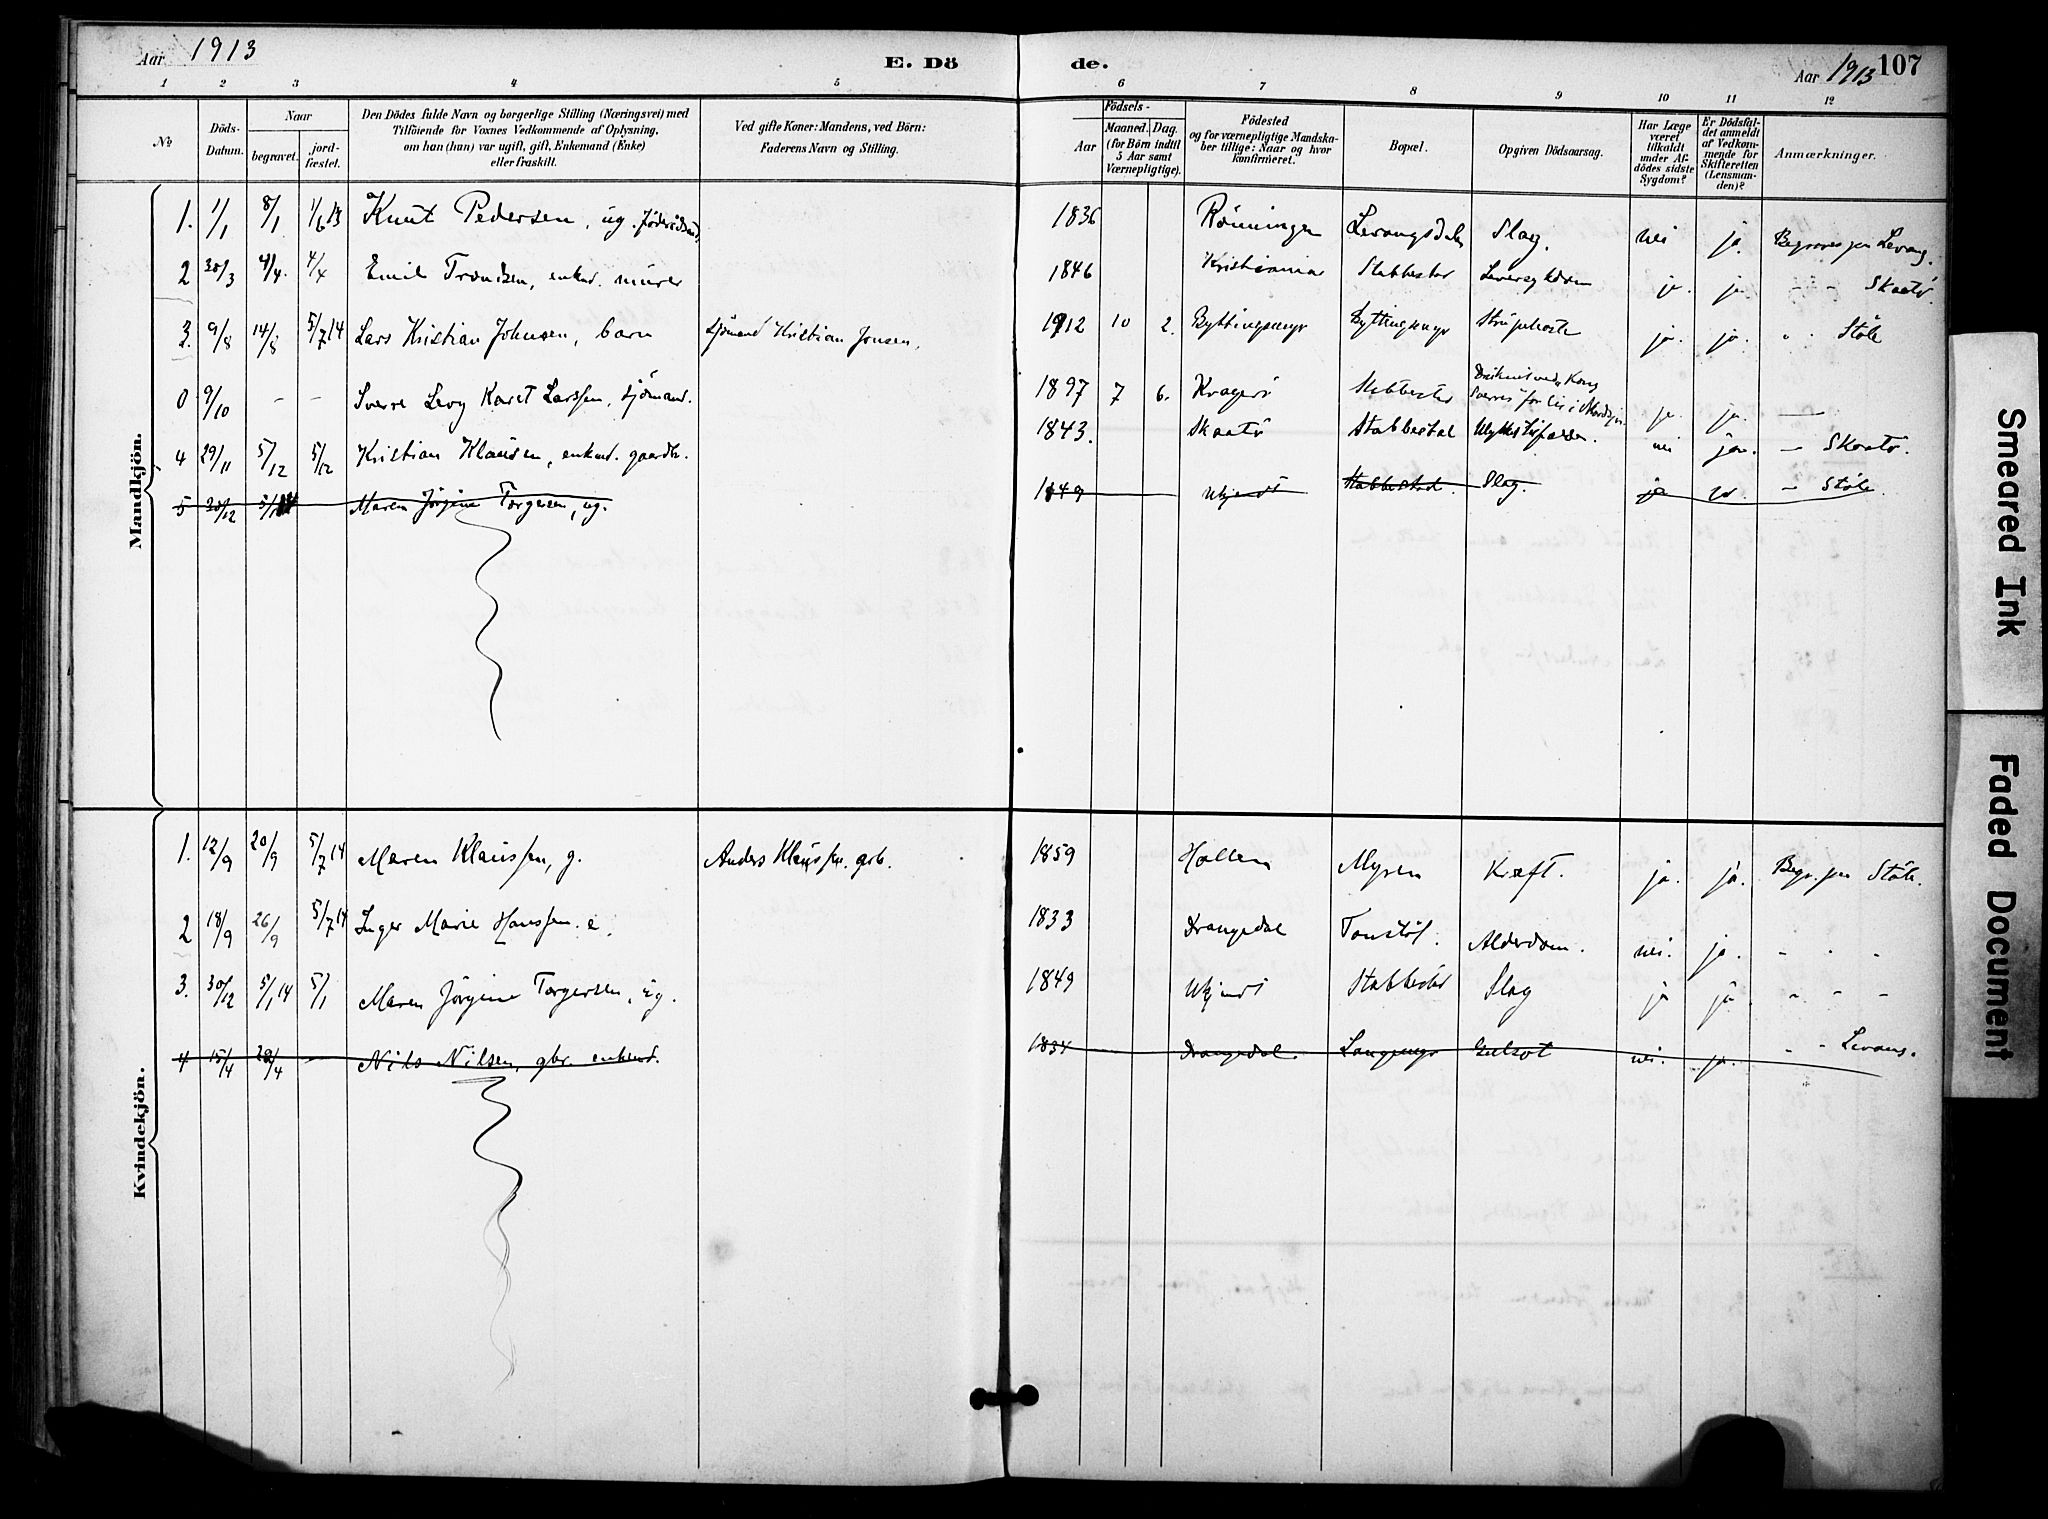 Aar 1913
E. Dö
de.
Aar 1913 107
1 2 3 4 5 6 7 8 9 10 11 12
No
Döds-
Datum.
Naar
begravet.
jord-
fæstet.
Den Dödes fulde Navn og borgerlige Stilling (Næringsvei) med
Tilföiende for Voxnes Vedkommende af Oplysning,
om han (hun) var ugift, gift, Enkemand (Enke)
eller fraskilt.
Ved gifte Koner: Mandens, ved Börn:
Faderens Navn og Stilling.
Födsels-
Aar
Maaned. Dag.
(for Börn indtil
5 Aar samt
Værnepligtige).
Födested
og for værnepligtige Mandska-
ber tillige: Naar og hvor
konfirmeret.
Bopæl.
Opgiven Dödsaarsag.
Har Læge
været
tilkaldt
under Af-
dödes sidste
Sygdom?
Er Dödsfal-
det anmeldt
af Vedkom-
mende for
Skifteretten
(Lensman-
den)?
Anmærkninger.
Mandkjön.
1. 1/1 8/1 1/6 13 Knut Pedersen, ug. 1836 Rönningen Levangsdalen Slag. nei ja. Begraves paa Levang.
2 30/3 4/4. 4/4 Emil Trondsen, enkm. murer 1846 Kristiania Stabbestad Leversykdom ja. ja. - - Skaatö.
3. 9/8 14/8 5/7 14 Lars Kristian Johnsen, barn sjömand Kristian Jonsen, 1912 10 2. Byttingsmyr Byttingsmyr Strupehoste ja. ja. " " Stöle
0 9/10 - - Sverre Levy Karet Larssen, sjömand. 1897 7 6. Kragerö Stabbestad Druknet ved "Kong
Sverres" forlis i Nordsjöen ja. ja. —
4 29/11 5/12 5/12 Kristian Klausen, enkmd. gaardbr. 1843. Skaatö Stabbestad Ulykkestilfælde. nei ja. - Skaatö.
5 30/12 5/1 14 Maren Jörgine Torgersen, ug. 1849 Ukjendt Stabbestad. Slag. ja - Stöle.
Kvindekjön.
1. 12/9 20/9 5/7 14 Maren Klaussen, g. Anders Klaussen. grb. 1859 Hollen Myren Kræft. ja. ja. Begr. paa Stöle.
2 18/9 26/9 5/7 14 Inger Marie Hanssen. e. 1833 Drangedal Tonstöl. Alderdom. nei. ja. " " "
3. 30/12 5/1 14 5/1 Maren Jörgine Torgersen, ug. 1849 Ukjendt Stabbestad Slag ja ja. " - -
4 15/4 20/4 — Nils Nilsen, gbr. enkemd. 1834 Drangedal. Langmyr Gulsot nei. ja. " - Levang.
Smeared Ink
Faded Document